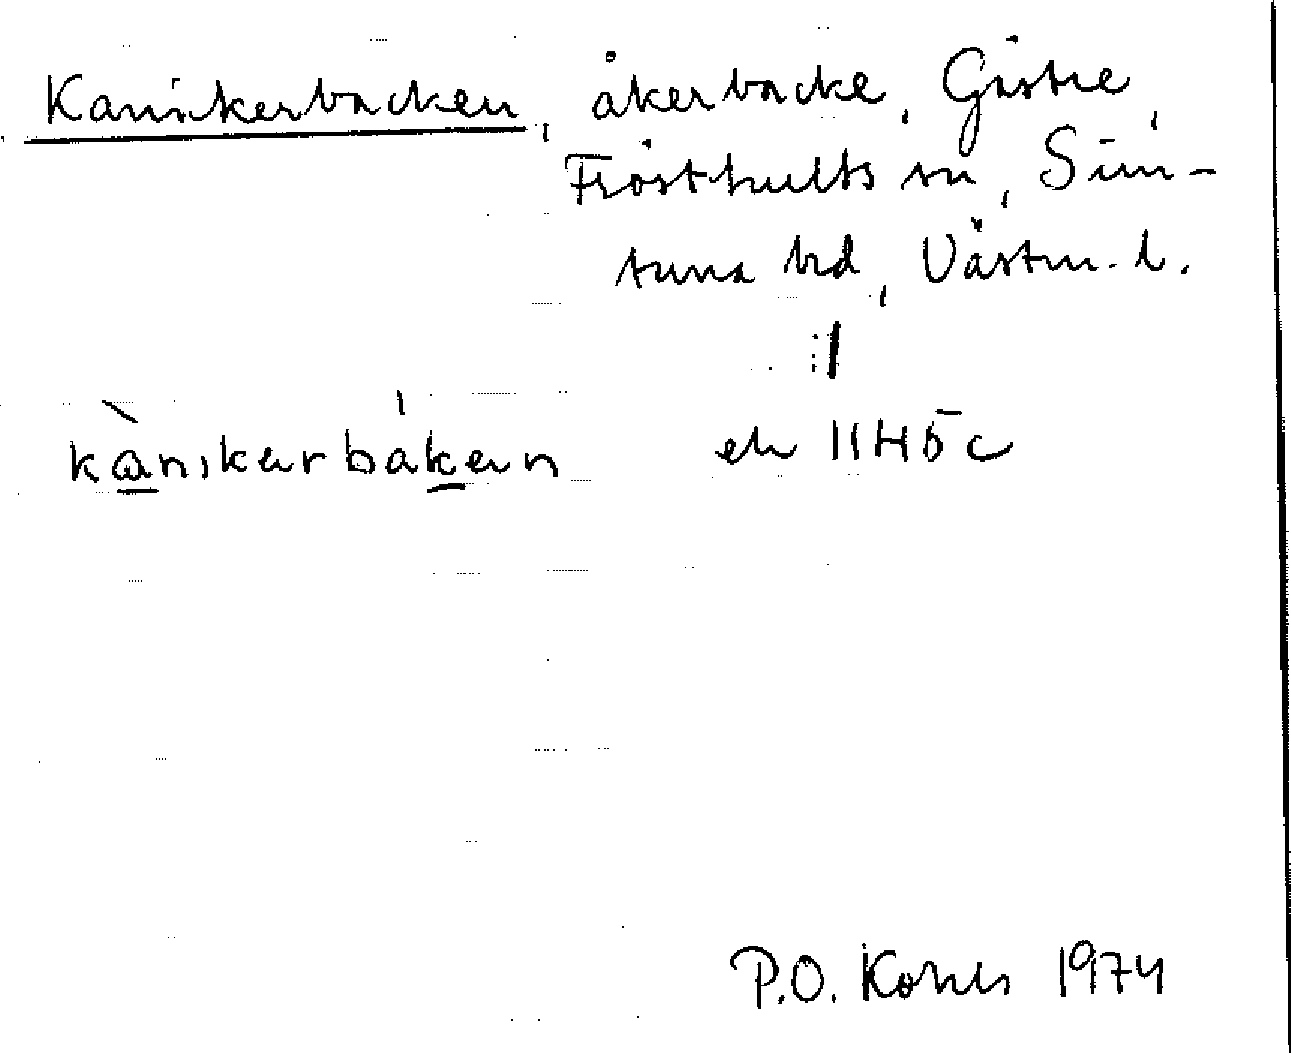 Kanikerbacken, åkerbacke, Gästre,
Frösthults sn, Sim-
tuna hd, Västm. l.
kànikerbaken ek 11H5c
P.O. 1974